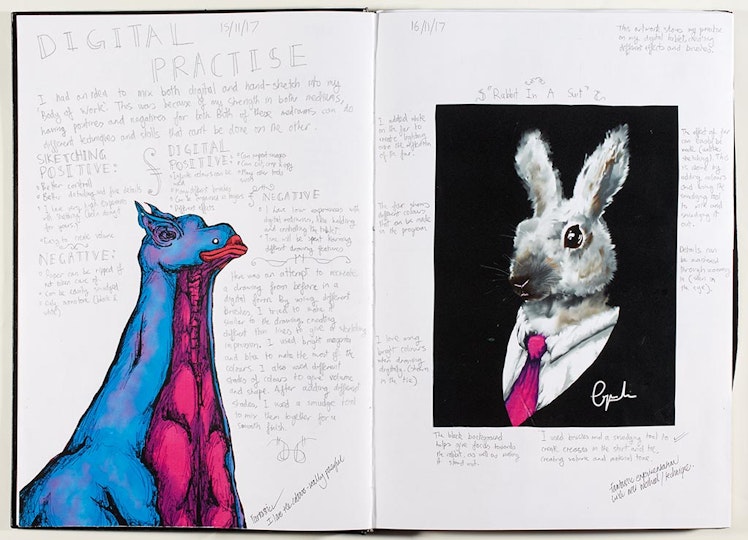 DIGITAL
15/11/17
PRACTISE
I had an idea to mix both digital and hand-sketch into my
'Body of Work'. This was because of my strength in both mediums,
having positives and negatives for both. Both of these mediums can do
different techniques and skills that can't be done on the other.
SKETCHING
POSITIVE:
• Better control
• Better detailing and fine details
• I have very high experience
with sketching (been doing it
for years)
• Easy to make volume
NEGATIVE:
• Paper can be ripped if
not taken care of
• Can be easily smudged
• Only monotone (black &
white)
DIGITAL
POSITIVE:
• Can import images
• Can cut and copy
• Many other tools
used
• Many different brushes
• Can be improved in stages
• Different effects
NEGATIVE
• I have low experiences with
digital mediums, like holding
and controlling the tablet
• Time will be spent learning
different drawing features
Here was an attempt to recreate
a drawing from before in a
digital form. By using different
brushes, I tried to make it
similar to the drawing, creating
different thin lines to give a sketching
impression. I used bright magenta
and blue to make the most of the
colours. I also used different
shades of colours to give volume
and shape. After adding different
shades, I used a smudge tool
to mix them together for a
smooth finish.
Fantastic
I love the colours - really playful
16/11/17
This artwork shows my practise
on my digital tablet, testing
different effects and brushes.
"Rabbit In A Suit"
I added white
on the fur to
create lighting
and the reflection
of the fur.
The fur shows
different colours
that can be made
in the program.
I love using
bright colours
when drawing
digitally (shown
in the tie)
The effect of fur
can could be
made
This is
done by
adding colours
and using the
smudging tool
to
smudging it
out.
Details can
be achieved
through zooming
in (seen in
the eye).
The black background
helps give focus towards
the rabbit, as well as making
it stand out.
I used brushes and a smudging tool to
create creases in the shirt and tie,
creating volume and material tone.
Fantastic experimentation
with art method/technique.